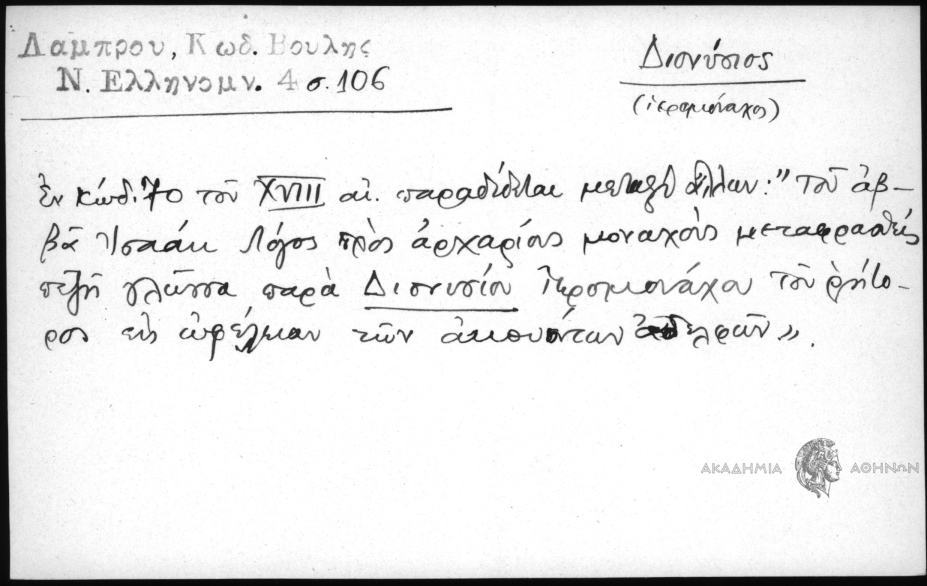 Λαμπρου, Κωδ. Βουλης
Ν. Ελληνομν. 4 σ. 106
Διονύσιος
(ἱερομόναχος)
ἐν κώδ. 70 τοῦ XVIII αἰ. παραδίδεται μεταξὺ ἄλλων: "Τοῦ ἀβ-
βᾶ Ἰσαὰκ Λόγος πρὸς ἀρχαρίους μοναχοὺς μεταφρασθεὶς
πεζῇ γλώσσῃ παρὰ Διονυσίου Ἱερομονάχου τοῦ ῥήτο-
ρος εἰς ὠφέλειαν τῶν ἀκουόντων ἀδελφῶν».
ΑΚΑΔΗΜΙΑ ΑΘΗΝΩΝ